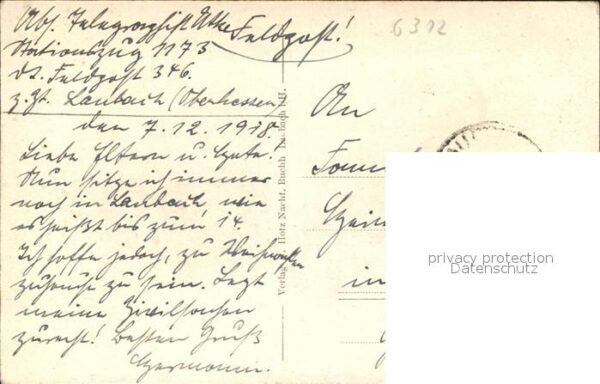 Abs. Telegraphist Utke Feldpost!
Stationszug 1173
dt. Feldpost 346.
z. Zt. Laubach (Oberhessen)
den 7.12.1918.
Liebe Eltern u. Grete!
Nun sitze ich immer
noch in Laubach wie
es heißt bis zum 14.
Ich hoffe jedoch, zu Weihnachten
zuhause zu sein. Legt
meine Zivilsachen
zurecht! Besten Gruß
Hermann.
6312
An
in
Verlag Hotz Nachf., Buchh. Laubach
privacy protection
Datenschutz